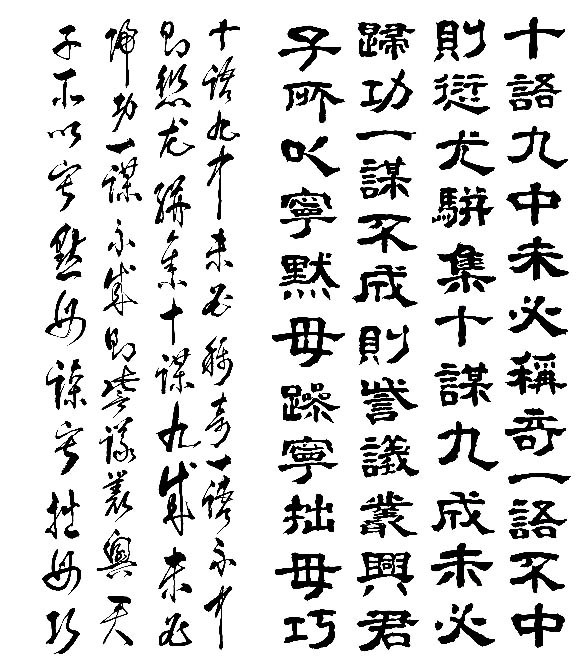 十語九中未必稱奇一語不中
則愆尤駢集十謀九成未必
歸功一謀不成則訾議叢興君
子所以寧默毋躁寧拙毋巧
十語九中未必稱奇一語不中
則愆尤駢集十謀九成未必
歸功一謀不成則訾議叢興君
子所以寧默毋躁寧拙毋巧